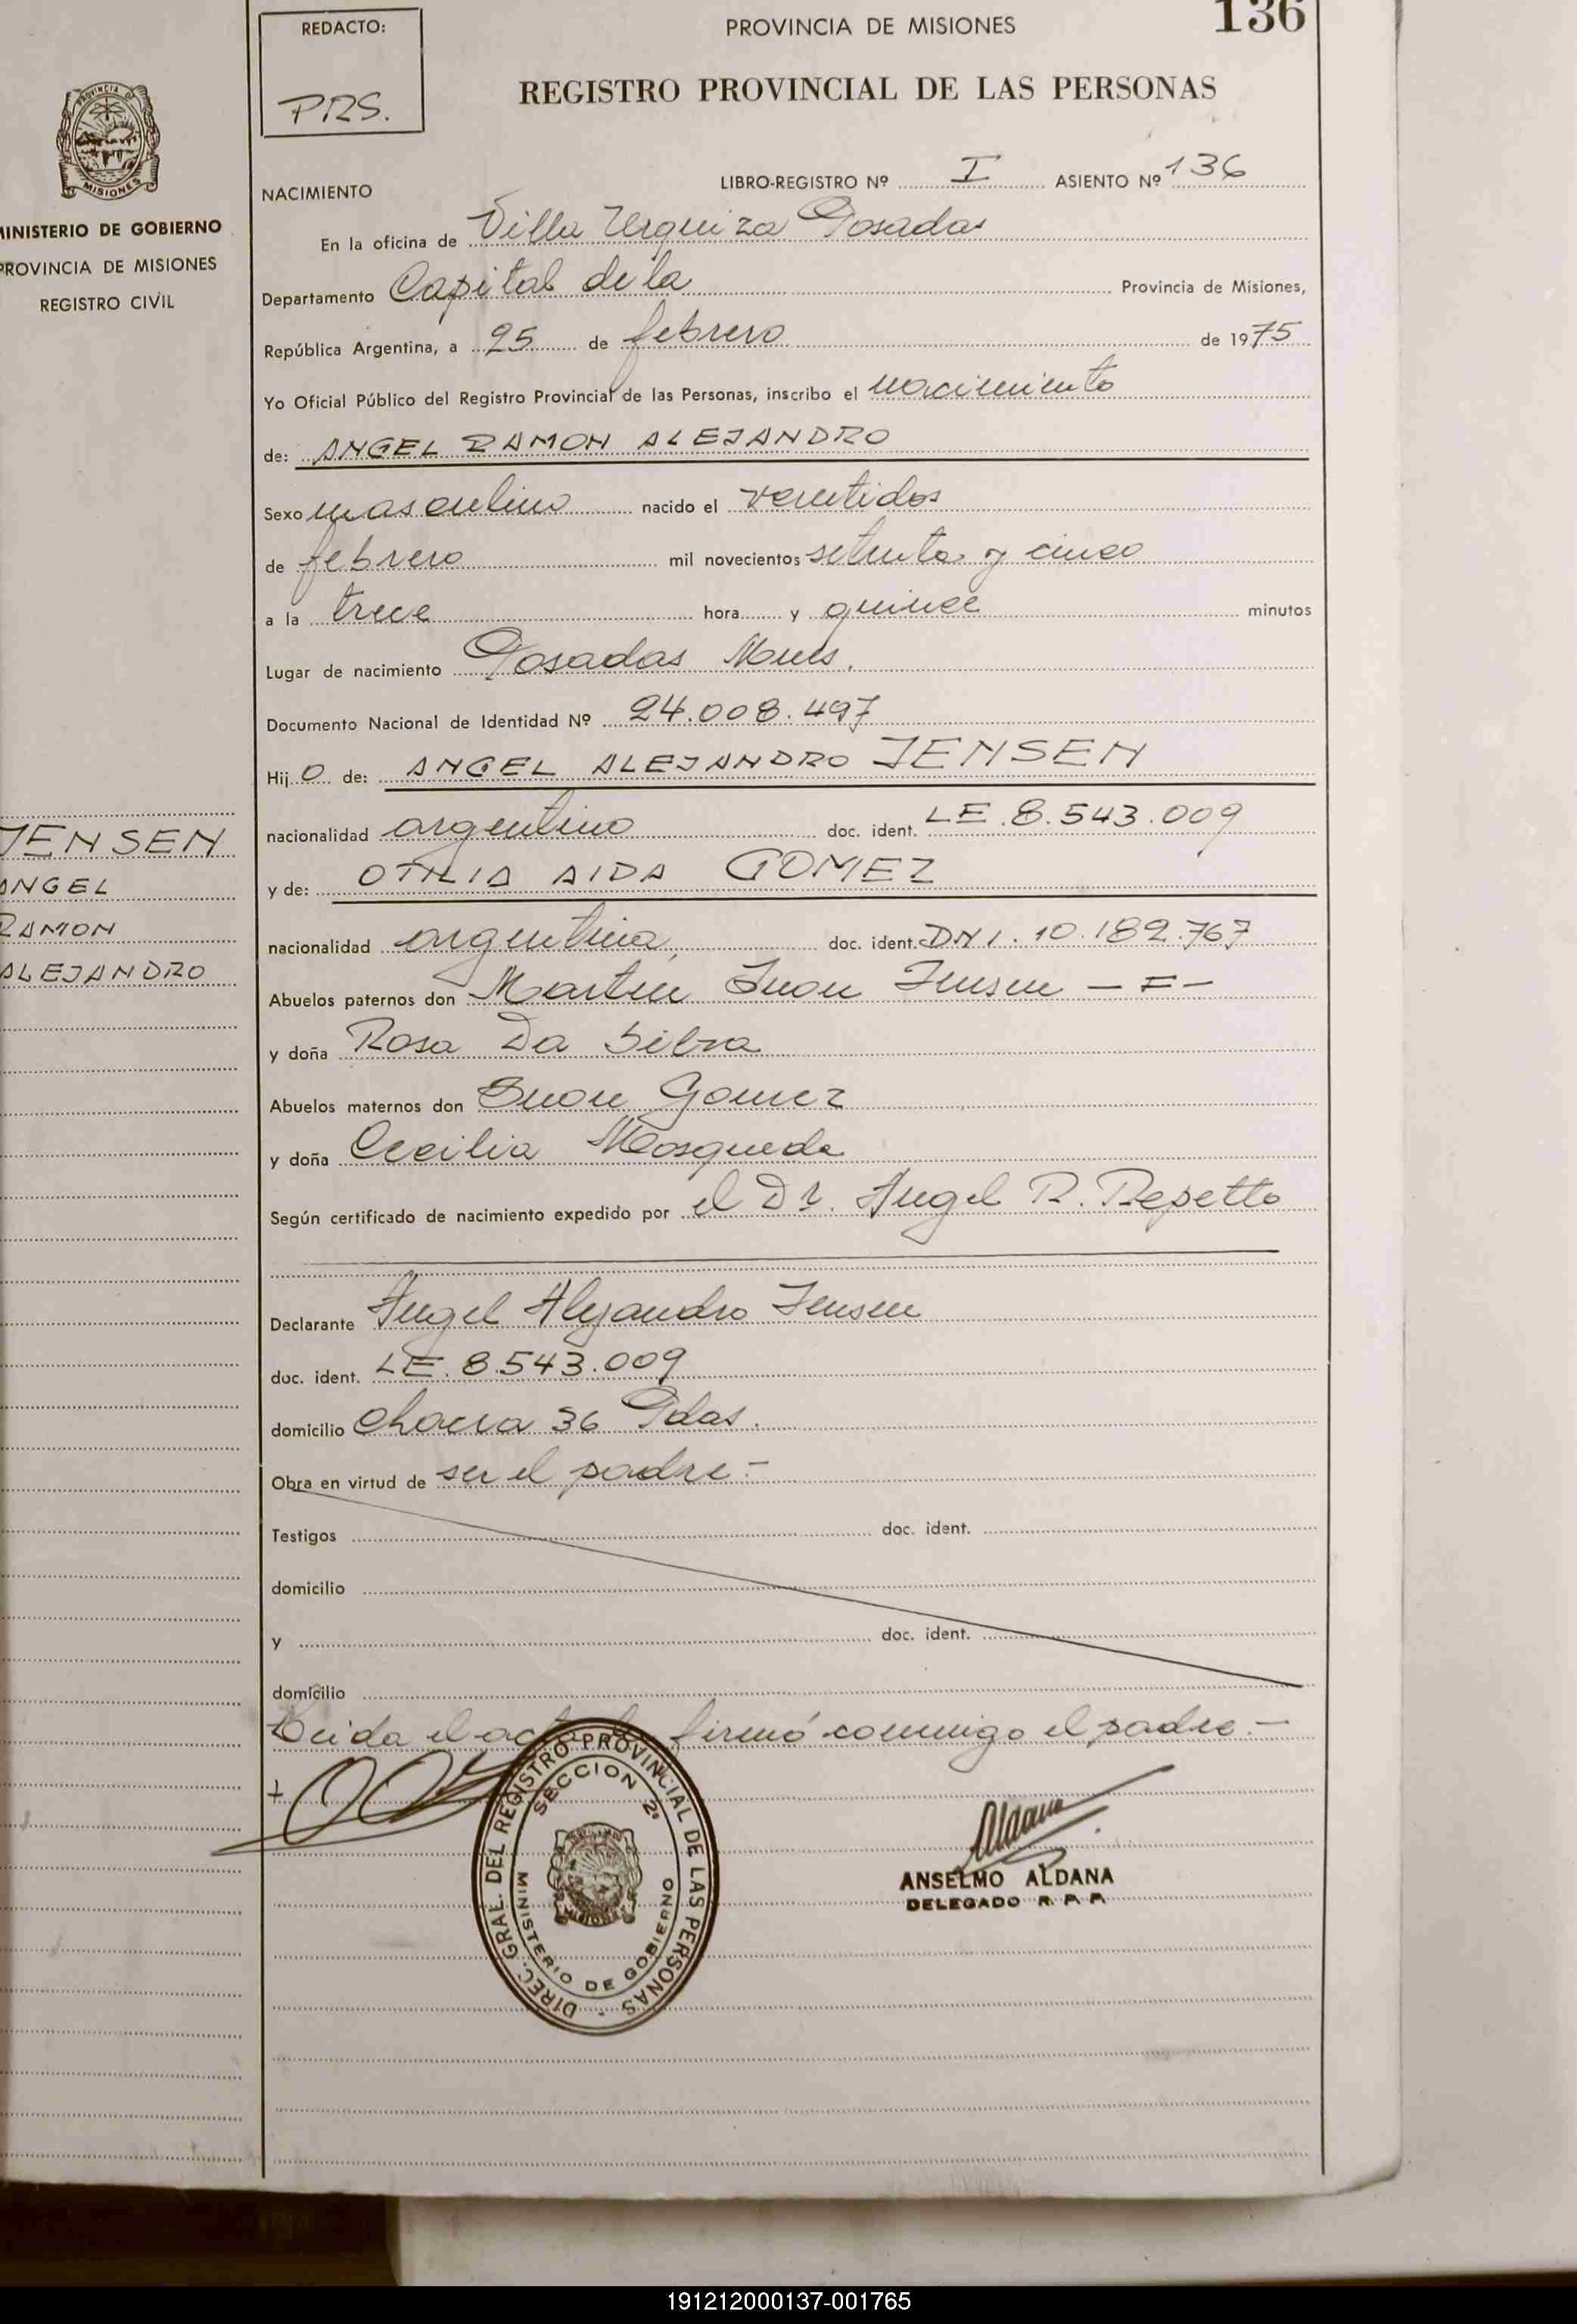 REDACTO:
PRS.
PROVINCIA DE MISIONES
136
REGISTRO PROVINCIAL DE LAS PERSONAS
MISIONES
MINISTERIO DE GOBIERNO
PROVINCIA DE MISIONES
REGISTRO CIVIL
NACIMIENTO
LIBRO-REGISTRO Nº I ASIENTO Nº 136
En la oficina de Villa Urquiza Posadas
Departamento Capital de la Provincia de Misiones,
República Argentina, a 25 de febrero de 1975
Yo Oficial Público del Registro Provincial de las Personas, inscribo el nacimiento
de: ANGEL RAMON ALEJANDRO
Sexo masculino nacido el veintidos
de febrero mil novecientos setenta y cinco
a la trece hora y quince minutos
Lugar de nacimiento Posadas Mnes.
Documento Nacional de Identidad Nº 24.008.497
Hijo de: ANGEL ALEJANDRO JENSEN
nacionalidad argentino doc. ident. LE.8.543.009
y de: OTILIA AIDA GOMEZ
nacionalidad argentina, doc. ident. DNI. 10.182.767
Abuelos paternos don Martin Juan Jensen — F —
y doña Rosa Da Silva
Abuelos maternos don Juan Gomez
y doña Cecilia Mosqueda
Según certificado de nacimiento expedido por el Dr. Angel R. Repetto
Declarante Angel Alejandro Jensen
doc. ident. LE. 8.543.009
domicilio chacra 36 Pdas.
Obra en virtud de ser el padre.-
Testigos doc. ident.
domicilio
y doc. ident.
domicilio
Leida el acta la firmó conmigo el padre.-
JENSEN
ANGEL
RAMON
ALEJANDRO
DIREC. GRAL. DEL REGISTRO PROVINCIAL DE LAS PERSONAS
SECCION 2ª
MINISTERIO DE GOBIERNO
Aldana
ANSELMO ALDANA
DELEGADO R. P. P.
191212000137-001765